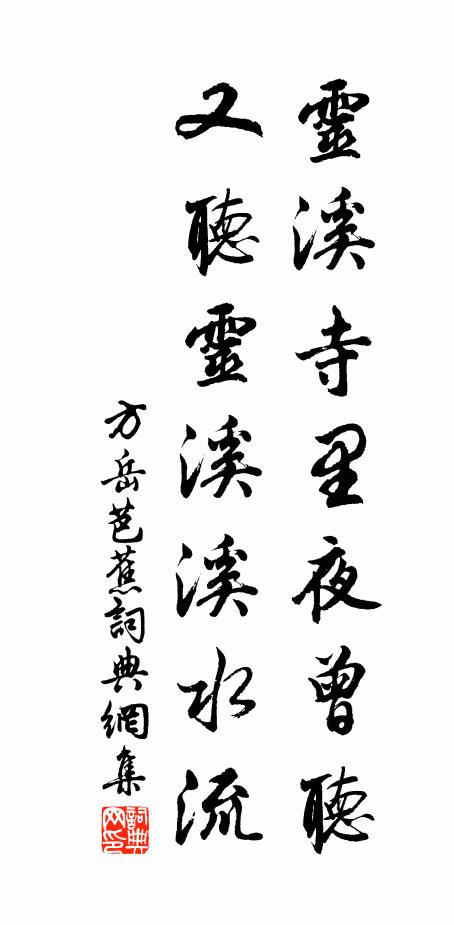 靈溪寺里夜曾聽
又聽靈溪溪水流
方岳芭蕉詞典網集
詞典網印